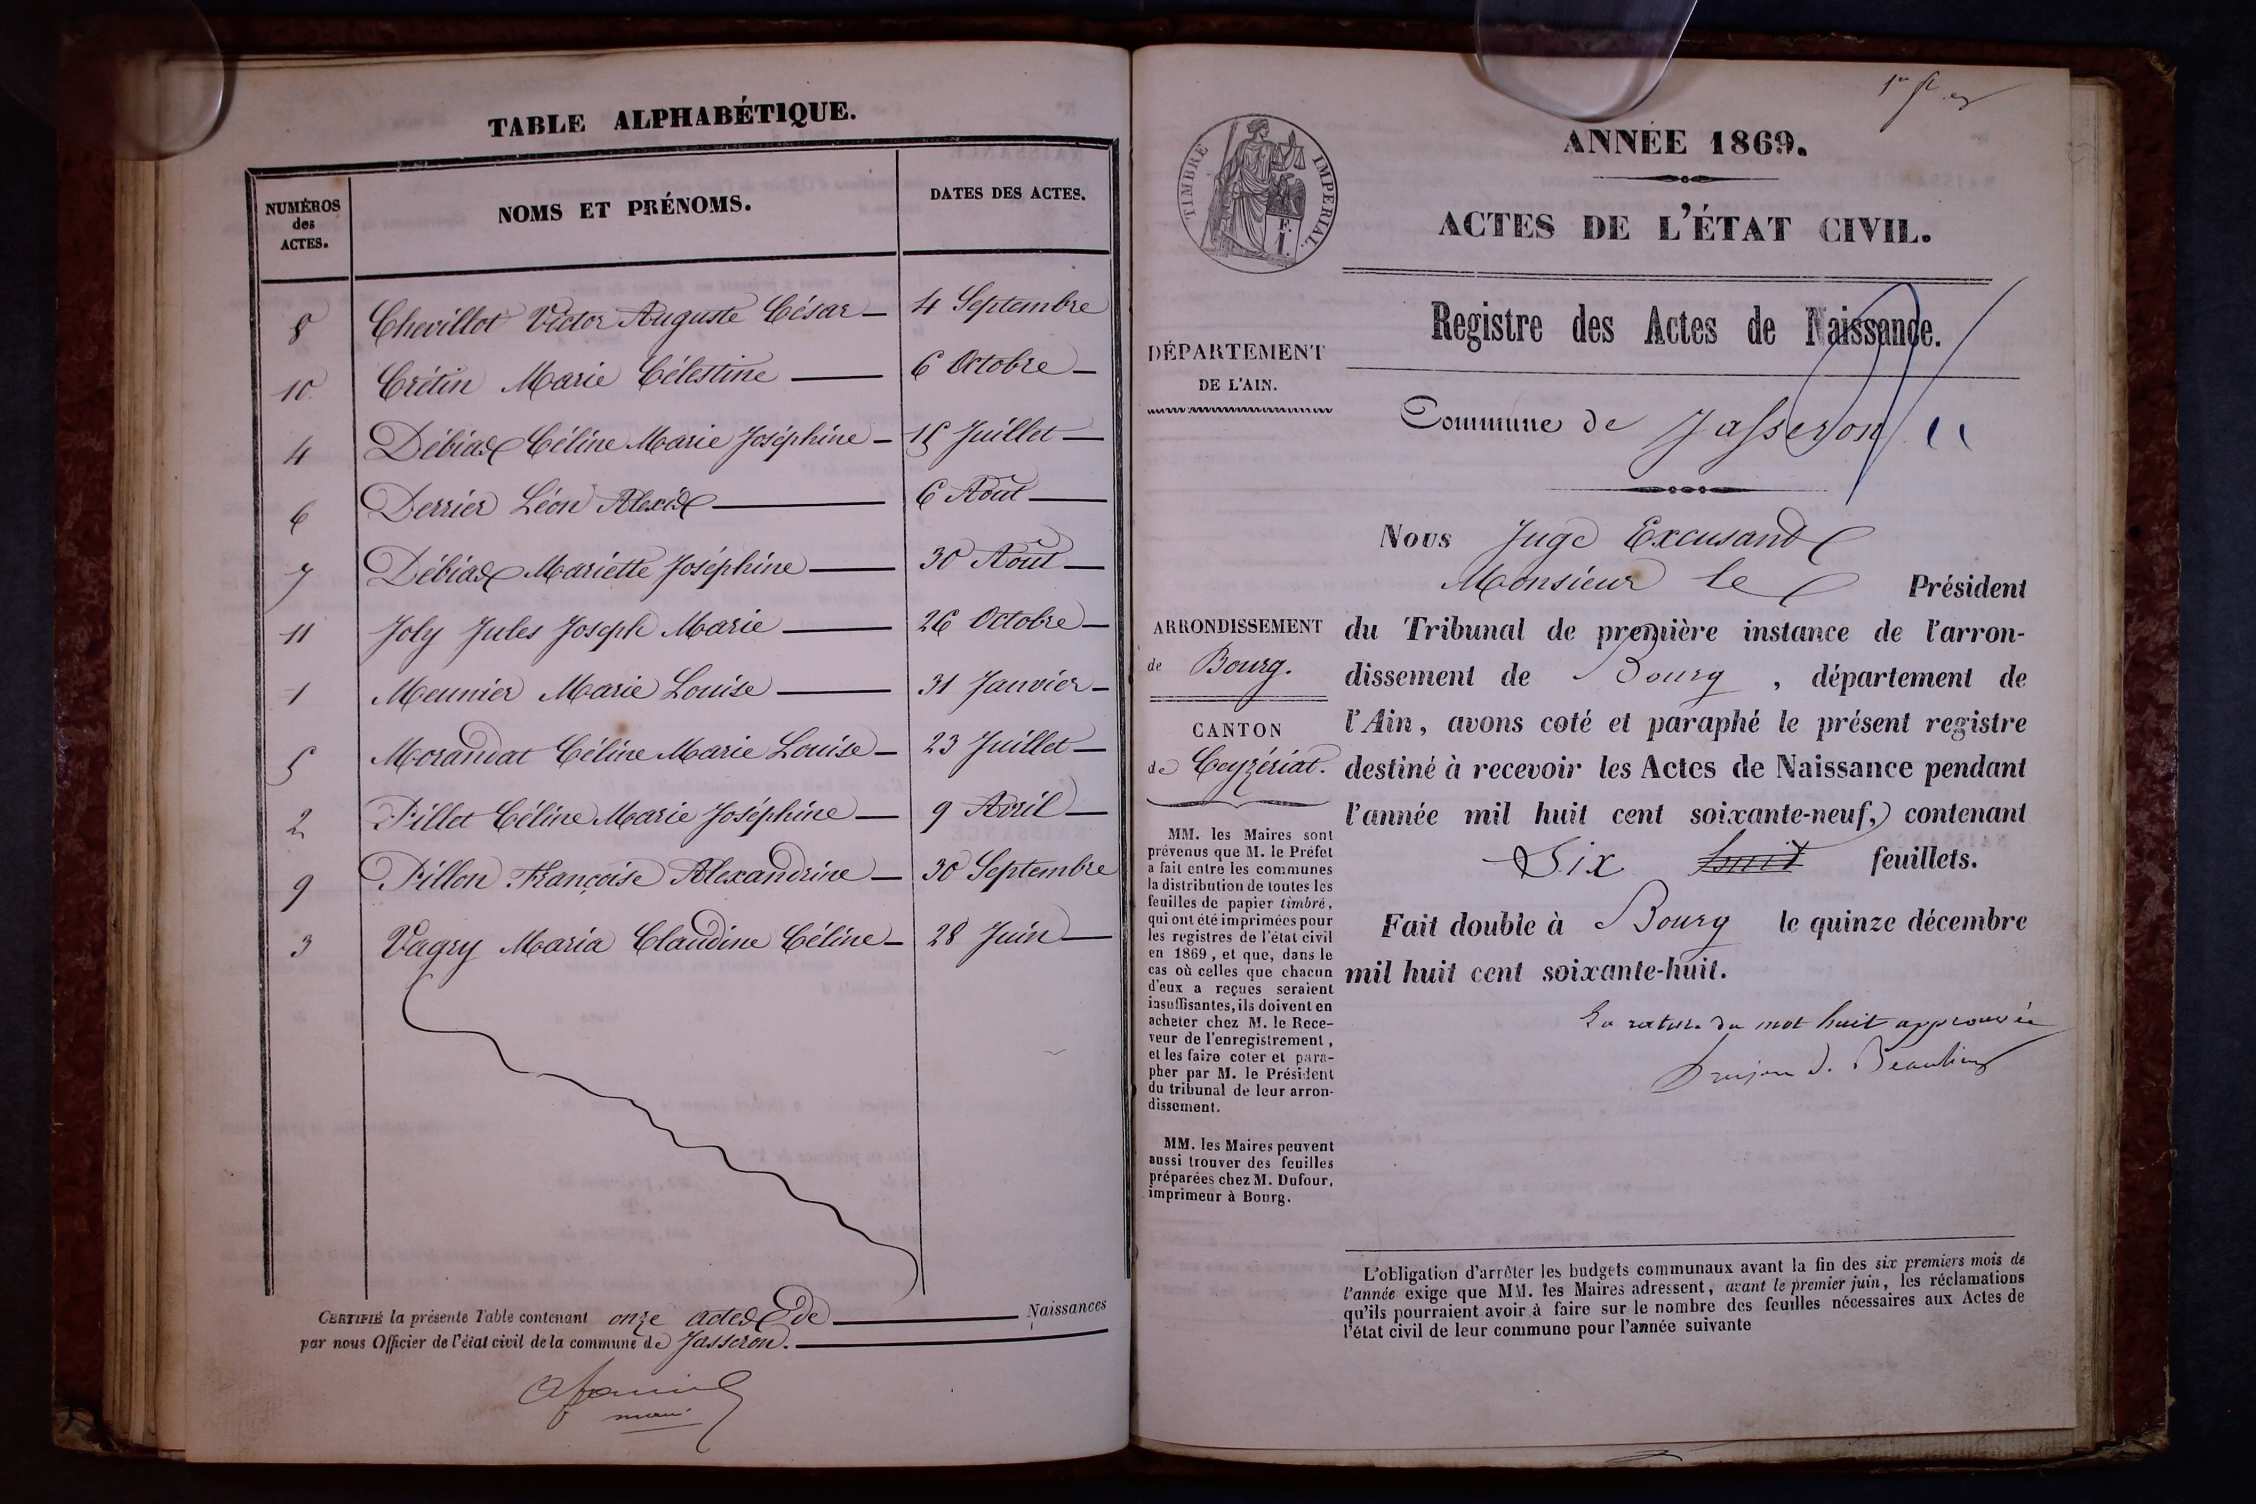 TABLE ALPHABÉTIQUE.
NUMÉROS des ACTES. NOMS ET PRÉNOMS. DATES DES ACTES.
8 Chevillot Victor Auguste César — 4 Septembre
10 Crétin Marie Célestine — 6 Octobre —
4 Débias Céline Marie Joséphine — 15 Juillet —
6 Derrier Léon Alexis — 6 Août —
7 Débias Mariette Joséphine — 30 Août —
11 Joly Jules Joseph Marie — 26 Octobre —
1 Meunier Marie Louise — 31 Janvier —
5 Morandat Céline Marie Louise — 23 Juillet —
2 Pillet Céline Marie Joséphine — 9 Avril —
9 Pillon Françoise Alexandrine — 30 Septembre
3 Vagry Maria Claudine Céline — 28 Juin —
CERTIFIÉ la présente Table contenant onze actes de — Naissances
par nous Officier de l'état civil de la commune de Jasseron. —
1er
TIMBRE IMPERIAL.
ANNÉE 1869.
ACTES DE L'ÉTAT CIVIL.
Registre des Actes de Naissance.
DÉPARTEMENT
DE L'AIN.
Commune de Jasseron
ARRONDISSEMENT
de Bourg.
CANTON
de Ceyzériat.
MM. les Maires sont
prévenus que M. le Préfet
a fait entre les communes
la distribution de toutes les
feuilles de papier timbré,
qui ont été imprimées pour
les registres de l'état civil
en 1869, et que, dans le
cas où celles que chacun
d'eux a reçues seraient
insuffisantes, ils doivent en
acheter chez M. le Rece-
veur de l'enregistrement,
et les faire coter et para-
pher par M. le Président
du tribunal de leur arron-
dissement.
MM. les Maires peuvent
aussi trouver des feuilles
préparées chez M. Dufour,
imprimeur à Bourg.
Nous Juge Excusant
Monsieur le Président
du Tribunal de première instance de l'arron-
dissement de Bourg, département de
l'Ain, avons coté et paraphé le présent registre
destiné à recevoir les Actes de Naissance pendant
l'année mil huit cent soixante-neuf, contenant
Six huit feuillets.
Fait double à Bourg le quinze décembre
mil huit cent soixante-huit.
La rature du mot huit approuvée
L'obligation d'arrêter les budgets communaux avant la fin des six premiers mois de
l'année exige que MM. les Maires adressent, avant le premier juin, les réclamations
qu'ils pourraient avoir à faire sur le nombre des feuilles nécessaires aux Actes de
l'état civil de leur commune pour l'année suivante